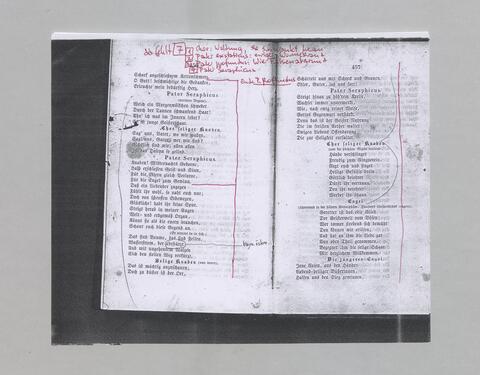 1 Chor: Waldung, sie schwankt heran
2 Pater ecstaticus: ewiger Wonnebrand
3 Pater profundus: Wie Felsenabgrund
4 Pater Seraphicus
Scharf angeschlossnem Kettenschmerz.
O Gott! beschwichtige die Gedanken,
Erleuchte mein bedürftig Herz.
Pater Seraphicus
(mittlere Region).
Welch ein Morgenwölkchen schwebet
Durch der Tannen schwankend Haar!
Ahn' ich was im Innern lebet?
Es ist junge Geisterschaar.
Chor seliger Knaben.
Sag' uns, Vater, wo wir wallen,
Sag' uns, Guter, wer wir sind?
Glücklich sind wir, allen allen
Ist das Daseyn so gelind.
Pater Seraphicus.
Knaben! Mitternachts Geborne,
Halb erschlossen Geist und Sinn,
Für die Eltern gleich Verlorne,
Für die Engel zum Gewinn.
Daß ein Liebender zugegen
Fühlt ihr wohl, so naht euch nur;
Doch von schroffen Erdewegen,
Glückliche! habt ihr keine Spur.
Steigt herab in meiner Augen
Welt- und erdgemäß Organ,
Könnt sie als die euern brauchen,
Schaut euch diese Gegend an.
(Er nimmt sie in sich.)
Das sind Bäume, das sind Felsen,
Wasserstrom, der abestürzt
Und mit ungeheurem Wälzen
Sich den steilen Weg verkürzt.
Selige Knaben (von innen).
Das ist mächtig anzuschauen,
Doch zu düster ist der Ort,
457
Schüttelt uns mit Schreck und Grauen.
Edler, Guter, laß uns fort!
Pater Seraphicus.
Steigt hinan zu höherm Kreise,
Wachset immer unvermerkt,
Wie, nach ewig reiner Weise,
Gottes Gegenwart verstärkt.
Denn das ist der Geister Nahrung
Die im freisten Aether waltet:
Ewigen Liebens Offenbarung
Die zur Seligkeit entfaltet.
Chor seliger Knaben
(um die höchsten Gipfel kreisend).
Hände verschlinget
Freudig zum Ringverein,
Regt euch und singet
Heil'ge Gefühle drein;
Göttlich belehret
Dürft ihr vertrauen,
Den ihr verehret
Werdet ihr schauen.
Engel
Gerettet ist das edle Glied
Der Geisterwelt vom Bösen:
Wer immer strebend sich bemüht
Den können wir erlösen,
Und hat an ihm die Liebe gar
Von oben Theil genommen,
Begegnet ihm die selige Schaar
Mit herzlichem Willkommen.
Die jüngeren Engel.
Jene Rosen, aus den Händen
Liebend-heiliger Büßerinnen,
Halfen uns den Sieg gewinnen